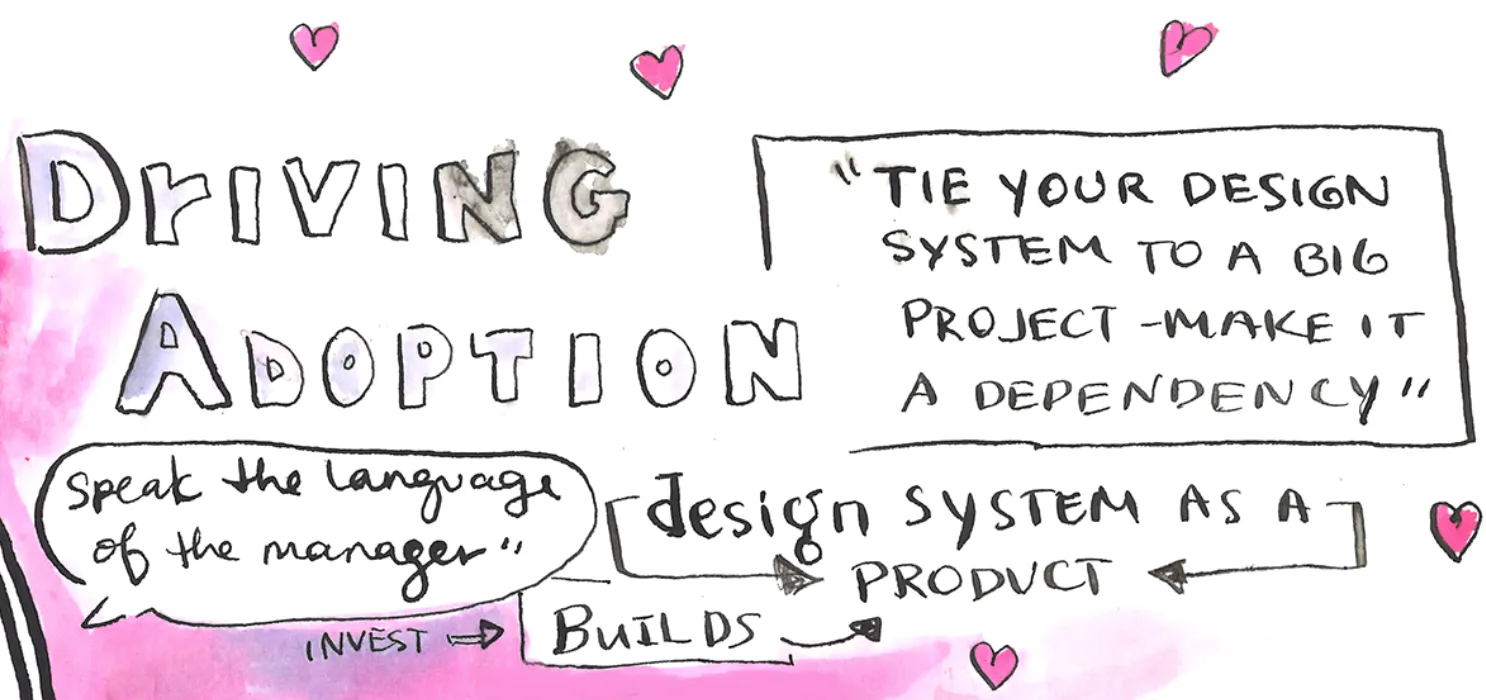 DrIVING
ADOPTION
"TIE YOUR DESIGN
SYSTEM TO A BIG
PROJECT - MAKE IT
A DEPENDENCY"
Speak the language
of the manager"
design SYSTEM AS A
PRODUCT
INVEST → BUILDS